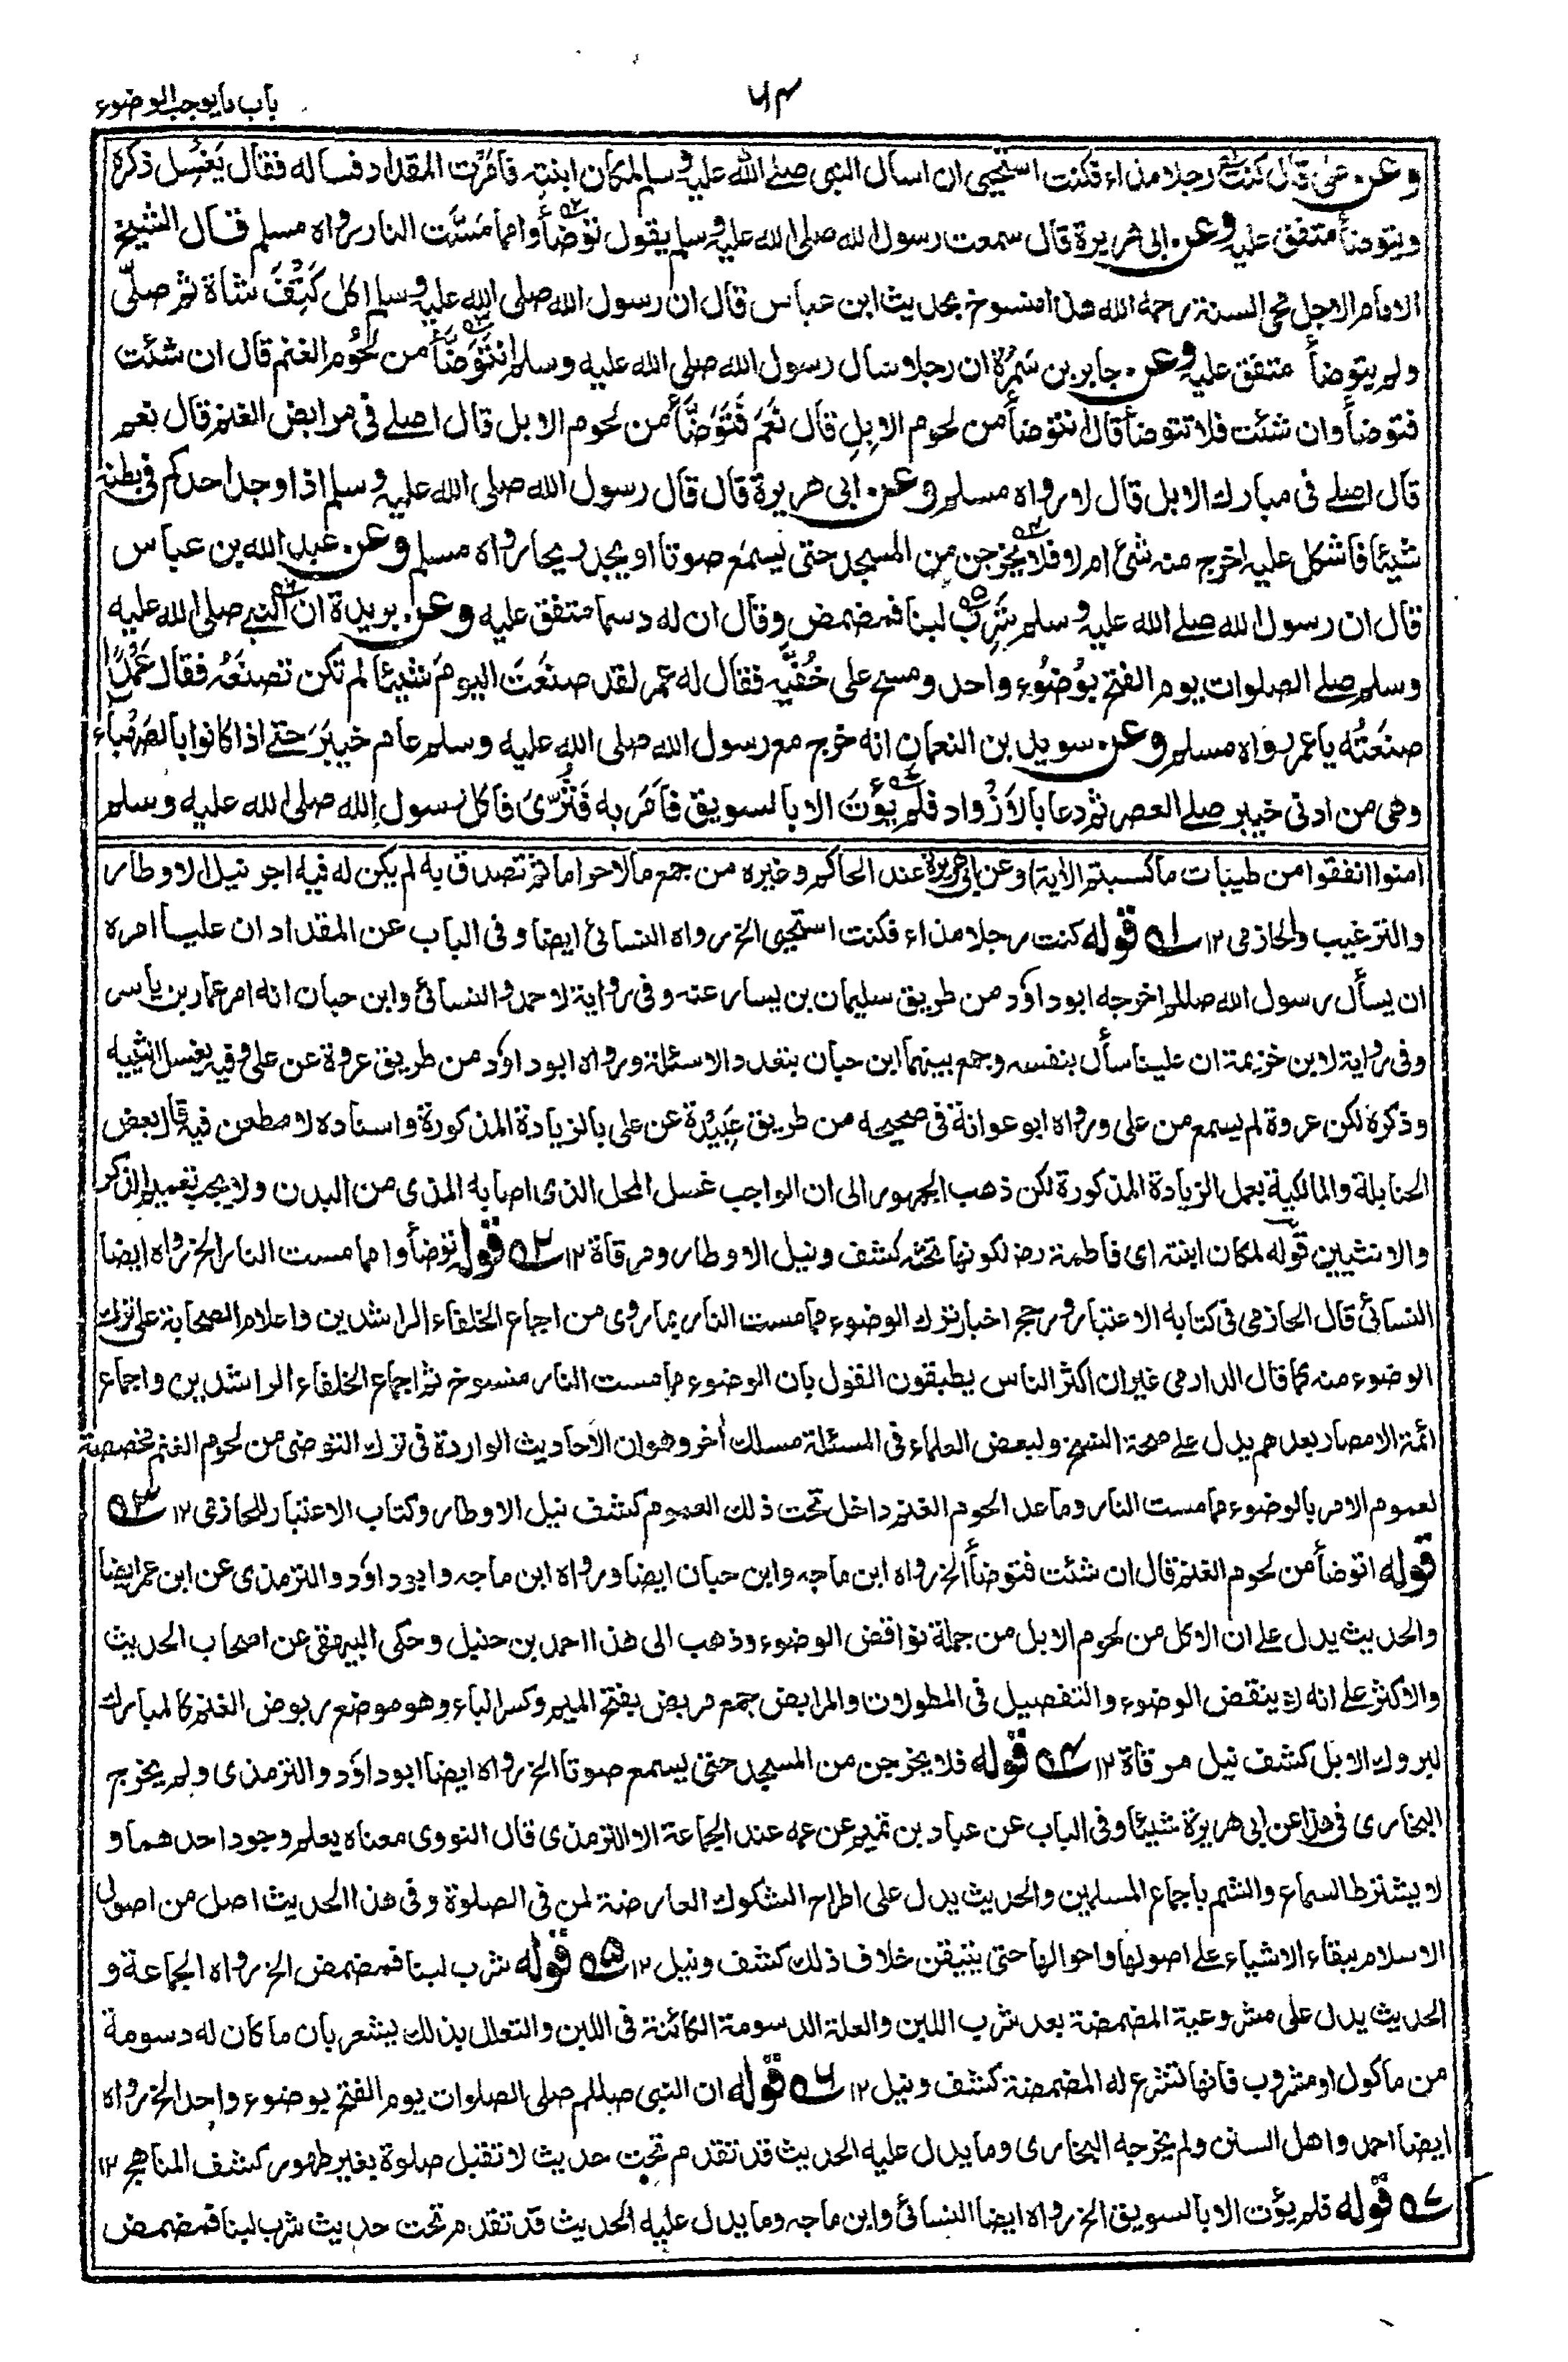 باب ما يوجب الوضوء
۶۴
وعن علی قال کنت رجلا مذاء فکنت استحیی ان اسأل النبی صلے الله علیه وسلم لمکان ابنته فامرت المقداد فساله فقال یغسل ذکره
ویتوضأ متفق علیه وعن ابی هریرة قال سمعت رسول الله صلی الله علیه وسلم یقول توضأوا مما مست النار رواه مسلم قال الشیخ
الامام الاجل محی السنة رحمه الله هذا منسوخ بحدیث ابن عباس قال ان رسول الله صلی الله علیه وسلم اکل کتف شاة ثم صلی
ولم یتوضأ متفق علیه وعن جابر بن سمرة ان رجلا سأل رسول الله صلی الله علیه وسلم انتوضأ من لحوم الغنم قال ان شئت
فتوضأ وان شئت فلا تتوضأ قال انتوضأ من لحوم الابل قال نعم فتوضأ من لحوم الابل قال اصلے فی مرابض الغنم قال نعم
قال اصلے فی مبارك الابل قال لا رواه مسلم وعن ابی هریرة قال قال رسول الله صلی الله علیه وسلم اذا وجد احدکم فی بطنه
شیئا فاشکل علیه اخرج منه شئ ام لا فلا یخرجن من المسجد حتی یسمع صوتا او یجد ریحا رواه مسلم وعن عبد الله بن عباس
قال ان رسول الله صلے الله علیه وسلم شرب لبنا فمضمض وقال ان له دسما متفق علیه وعن بریدة ان النبے صلی الله علیه
وسلم صلے الصلوات یوم الفتح بوضوء واحد ومسح علی خفیه فقال له عمر لقد صنعت الیوم شیئا لم تکن تصنعه فقال عمدا
صنعته یا عمر رواه مسلم وعن سوید بن النعمان انه خرج مع رسول الله صلی الله علیه وسلم عام خیبر حتے اذا کانوا بالصهباء
وهی من ادنی خیبر صلے العصر ثم دعا بالازواد فلم یؤت الا بالسویق فامر به فثری فاکل رسول الله صلی الله علیه وسلم
امنوا انفقوا من طیبات ما کسبتم الایة) وعن ابی هریرة عند الحاکم وغیره من جمع مالا حراما ثم تصدق به لم یکن له فیه اجر نیل الاوطار
والترغیب والحازمی ۱۲ ۱ قوله کنت رجلا مذاء فکنت استحیی الخ رواه النسائی ایضا وفی الباب عن المقداد ان علیا امره
ان یسأل رسول الله صللم اخرجه ابو داؤد من طریق سلیمان بن یسار عنه وفی روایة لاحمد والنسائی وابن حبان انه امر عمار بن یاسر
وفی روایة لابن خزیمة ان علیا سأل بنفسه وجمع بینهما ابن حبان بتعدد الاسئلة ورواه ابو داؤد من طریق عروة عن علی وفیه یغسل انثییه
وذکره لکن عروة لم یسمع من علی ورواه ابو عوانة فی صحیحه من طریق عبیدة عن علی بالزیادة المذکورة واسناده لا مطعن فیه قال بعض
الحنابلة والمالکیة بعمل الزیادة المذکورة لکن ذهب الجمهور الی ان الواجب غسل المحل الذی اصابه المذی من البدن ولا یجب تعمیم الذکر
والانثیین قوله لمکان ابنته ای فاطمة رض لکونها تحته کشف ونیل الاوطار ومرقاة ۱۲ ۲ قوله توضأوا مما مست النار الخ رواه ایضا
النسائی قال الحازمی فی کتابه الاعتبار ورجح اخبار ترك الوضوء مما مست النار بما روی من اجماع الخلفاء الراشدین واعلام الصحابة علی ترك
الوضوء منه کما قال الدارمی غیر ان اکثر الناس یطبقون القول بان الوضوء مما مست النار منسوخ ثم اجماع الخلفاء الراشدین واجماع
ائمة الامصار بعدهم یدل علے صحة النسخ ولبعض العلماء فی المسئلة مسلك اخر وهو ان الاحادیث الواردة فی ترك التوضی من لحوم الغنم مخصصة
لعموم الامر بالوضوء مما مست النار وما عدا لحوم الغنم داخل تحت ذلك العموم کشف نیل الاوطار وکتاب الاعتبار للحازمی ۱۲ ۳
قوله اتوضأ من لحوم الغنم قال ان شئت فتوضأ الخ رواه ابن ماجه وابن حبان ایضا ورواه ابن ماجه وابو داؤد والترمذی عن ابن عمر ایضا
والحدیث یدل علے ان الاکل من لحوم الابل من جملة نواقض الوضوء وذهب الی هذا احمد بن حنبل وحکی البیهقی عن اصحاب الحدیث
والاکثر علے انه لا ینقض الوضوء والتفصیل فی المطولات والمرابض جمع مربض بفتح المیم وکسر الباء وهو موضع ربوض الغنم کالمبارك
لبروك الابل کشف نیل مرقاة ۱۲ ۴ قوله فلا یخرجن من المسجد حتی یسمع صوتا الخ رواه ایضا ابو داؤد والترمذی ولم یخرج
البخاری فی هذا عن ابی هریرة شیئا وفی الباب عن عباد بن تمیم عن عمه عند الجماعة الا الترمذی قال النووی معناه یعلم وجود احدهما و
لا یشترط السماع والشم باجماع المسلمین والحدیث یدل علی اطراح الشکوك العارضة لمن فی الصلوة وفی هذا الحدیث اصل من اصول
الاسلام ببقاء الاشیاء علے اصولها واحوالها حتی یتیقن خلاف ذلك کشف ونیل ۱۲ ۵ قوله شرب لبنا فمضمض الخ رواه الجماعة و
الحدیث یدل علی مشروعیة المضمضة بعد شرب اللبن والعلة الدسومة الکائنة فی اللبن والتعلل بذلك یشعر بان ما کان له دسومة
من ماکول او مشروب فانها تشرع له المضمضة کشف ونیل ۱۲ ۶ قوله ان النبی صللم صلی الصلوات یوم الفتح بوضوء واحد الخ رواه
ایضا احمد واهل السنن ولم یخرجه البخاری وما یدل علیه الحدیث قد تقدم تحت حدیث لا تقبل صلوة بغیر طهور کشف المناهج ۱۲
۷ قوله فلم یؤت الا بالسویق الخ رواه ایضا النسائی وابن ماجه وما یدل علیه الحدیث قد تقدم تحت حدیث شرب لبنا فمضمض